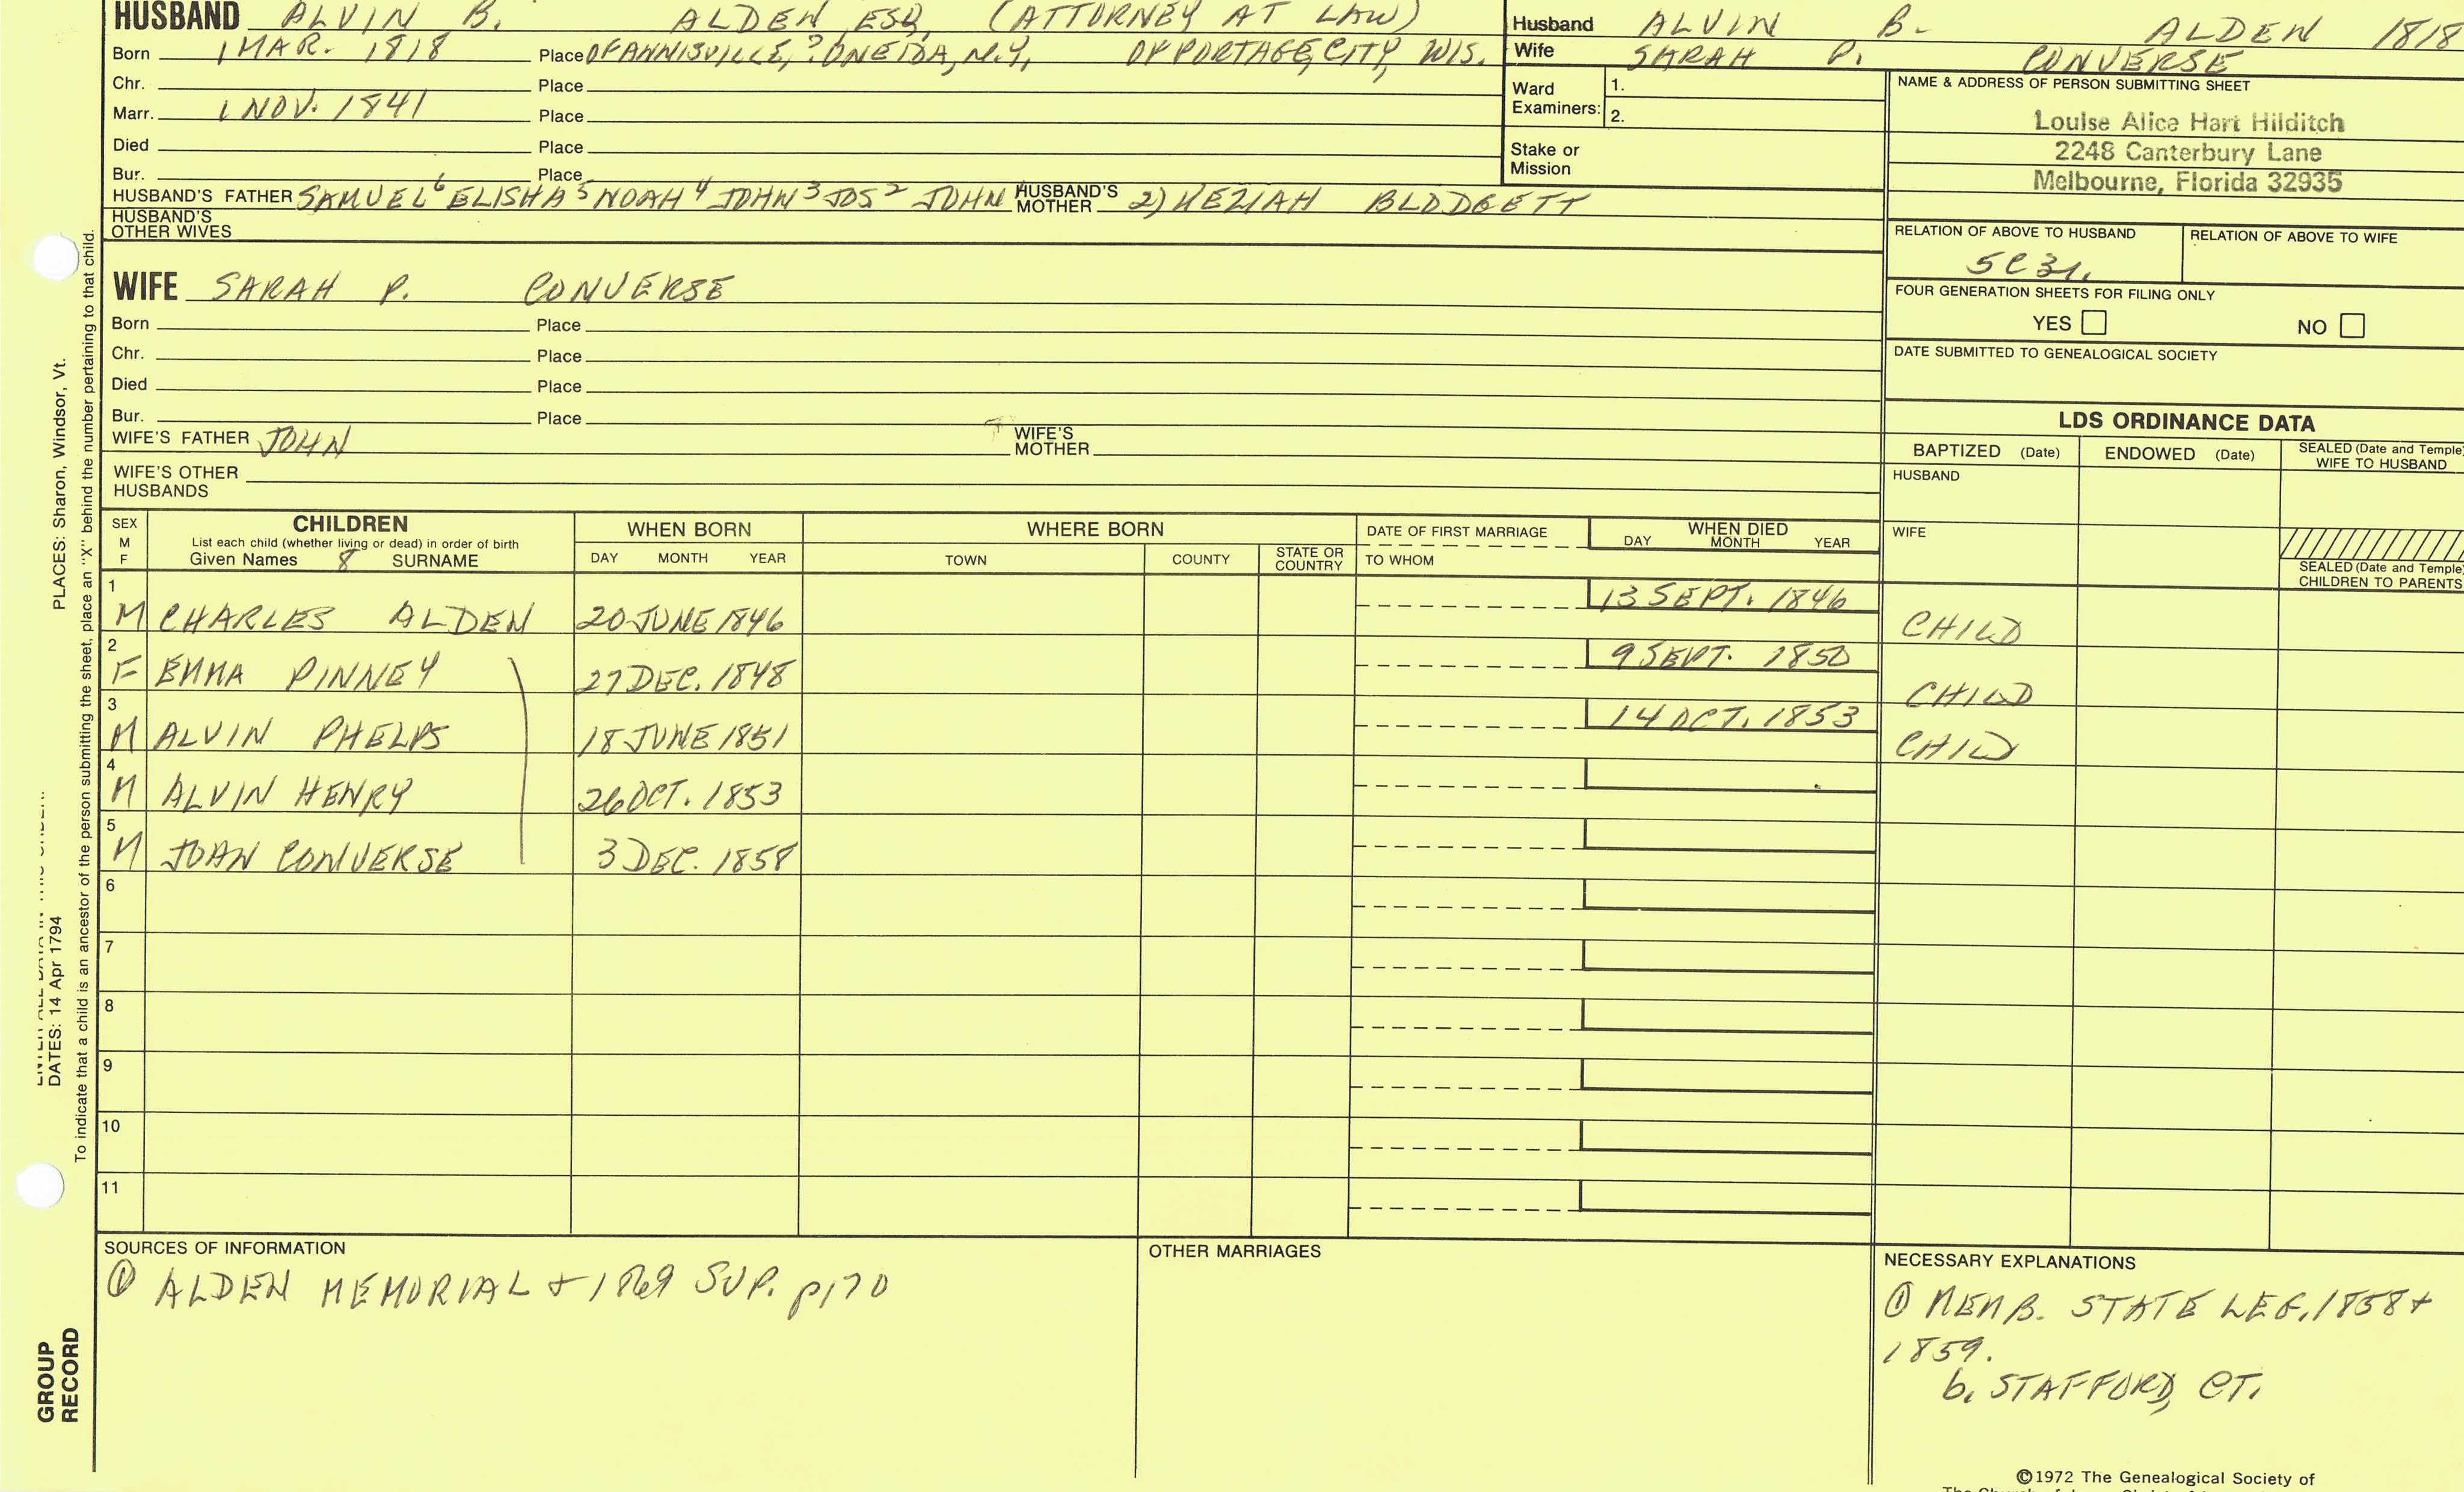 HUSBAND ALVIN B. ALDEN ESQ. (ATTORNEY AT LAW)
Born 1 MAR. 1818 Place OF ANNISVILLE, ? ONEIDA, N.Y., OF PORTAGE, CITY, WIS.
Chr. Place
Marr. 1 NOV. 1841 Place
Died Place
Bur. Place
HUSBAND'S FATHER SAMUEL⁶ ELISHA⁵ NOAH⁴ JOHN³ JOS² JOHN HUSBAND'S MOTHER 2) KEZIAH BLODGETT
HUSBAND'S OTHER WIVES
Husband ALVIN B. ALDEN 1818
Wife SARAH P. CONVERSE
Ward Examiners: 1.
2.
Stake or Mission
NAME & ADDRESS OF PERSON SUBMITTING SHEET
Louise Alice Hart Hilditch
2248 Canterbury Lane
Melbourne, Florida 32935
RELATION OF ABOVE TO HUSBAND RELATION OF ABOVE TO WIFE
5C3r.
FOUR GENERATION SHEETS FOR FILING ONLY
YES NO
DATE SUBMITTED TO GENEALOGICAL SOCIETY
WIFE SARAH P. CONVERSE
Born Place
Chr. Place
Died Place
Bur. Place
WIFE'S FATHER JOHN WIFE'S MOTHER
WIFE'S OTHER HUSBANDS
LDS ORDINANCE DATA
BAPTIZED (Date) ENDOWED (Date) SEALED (Date and Temple) WIFE TO HUSBAND
HUSBAND
WIFE
SEALED (Date and Temple) CHILDREN TO PARENTS
SEX M F
CHILDREN
List each child (whether living or dead) in order of birth
Given Names 8 SURNAME
WHEN BORN
DAY MONTH YEAR
WHERE BORN
TOWN COUNTY STATE OR COUNTRY
DATE OF FIRST MARRIAGE
TO WHOM
WHEN DIED
DAY MONTH YEAR
1 M CHARLES ALDEN 20 JUNE 1846 13 SEPT. 1846 CHILD
2 F EMMA PINNEY 27 DEC. 1848 9 SEPT. 1850 CHILD
3 M ALVIN PHELPS 18 JUNE 1851 14 OCT. 1853 CHILD
4 M ALVIN HENRY 26 OCT. 1853
5 M JOHN CONVERSE 3 DEC. 1858
6
7
8
9
10
11
SOURCES OF INFORMATION
① ALDEN MEMORIAL + 1869 SUP. p170
OTHER MARRIAGES
NECESSARY EXPLANATIONS
① MEMB. STATE LEG. 1858 +
1859.
b. STAFFORD, CT.
©1972 The Genealogical Society of
PLACES: Sharon, Windsor, Vt.
DATES: 14 Apr 1794
To indicate that a child is an ancestor of the person submitting the sheet, place an "X" behind the number pertaining to that child.
GROUP
RECORD